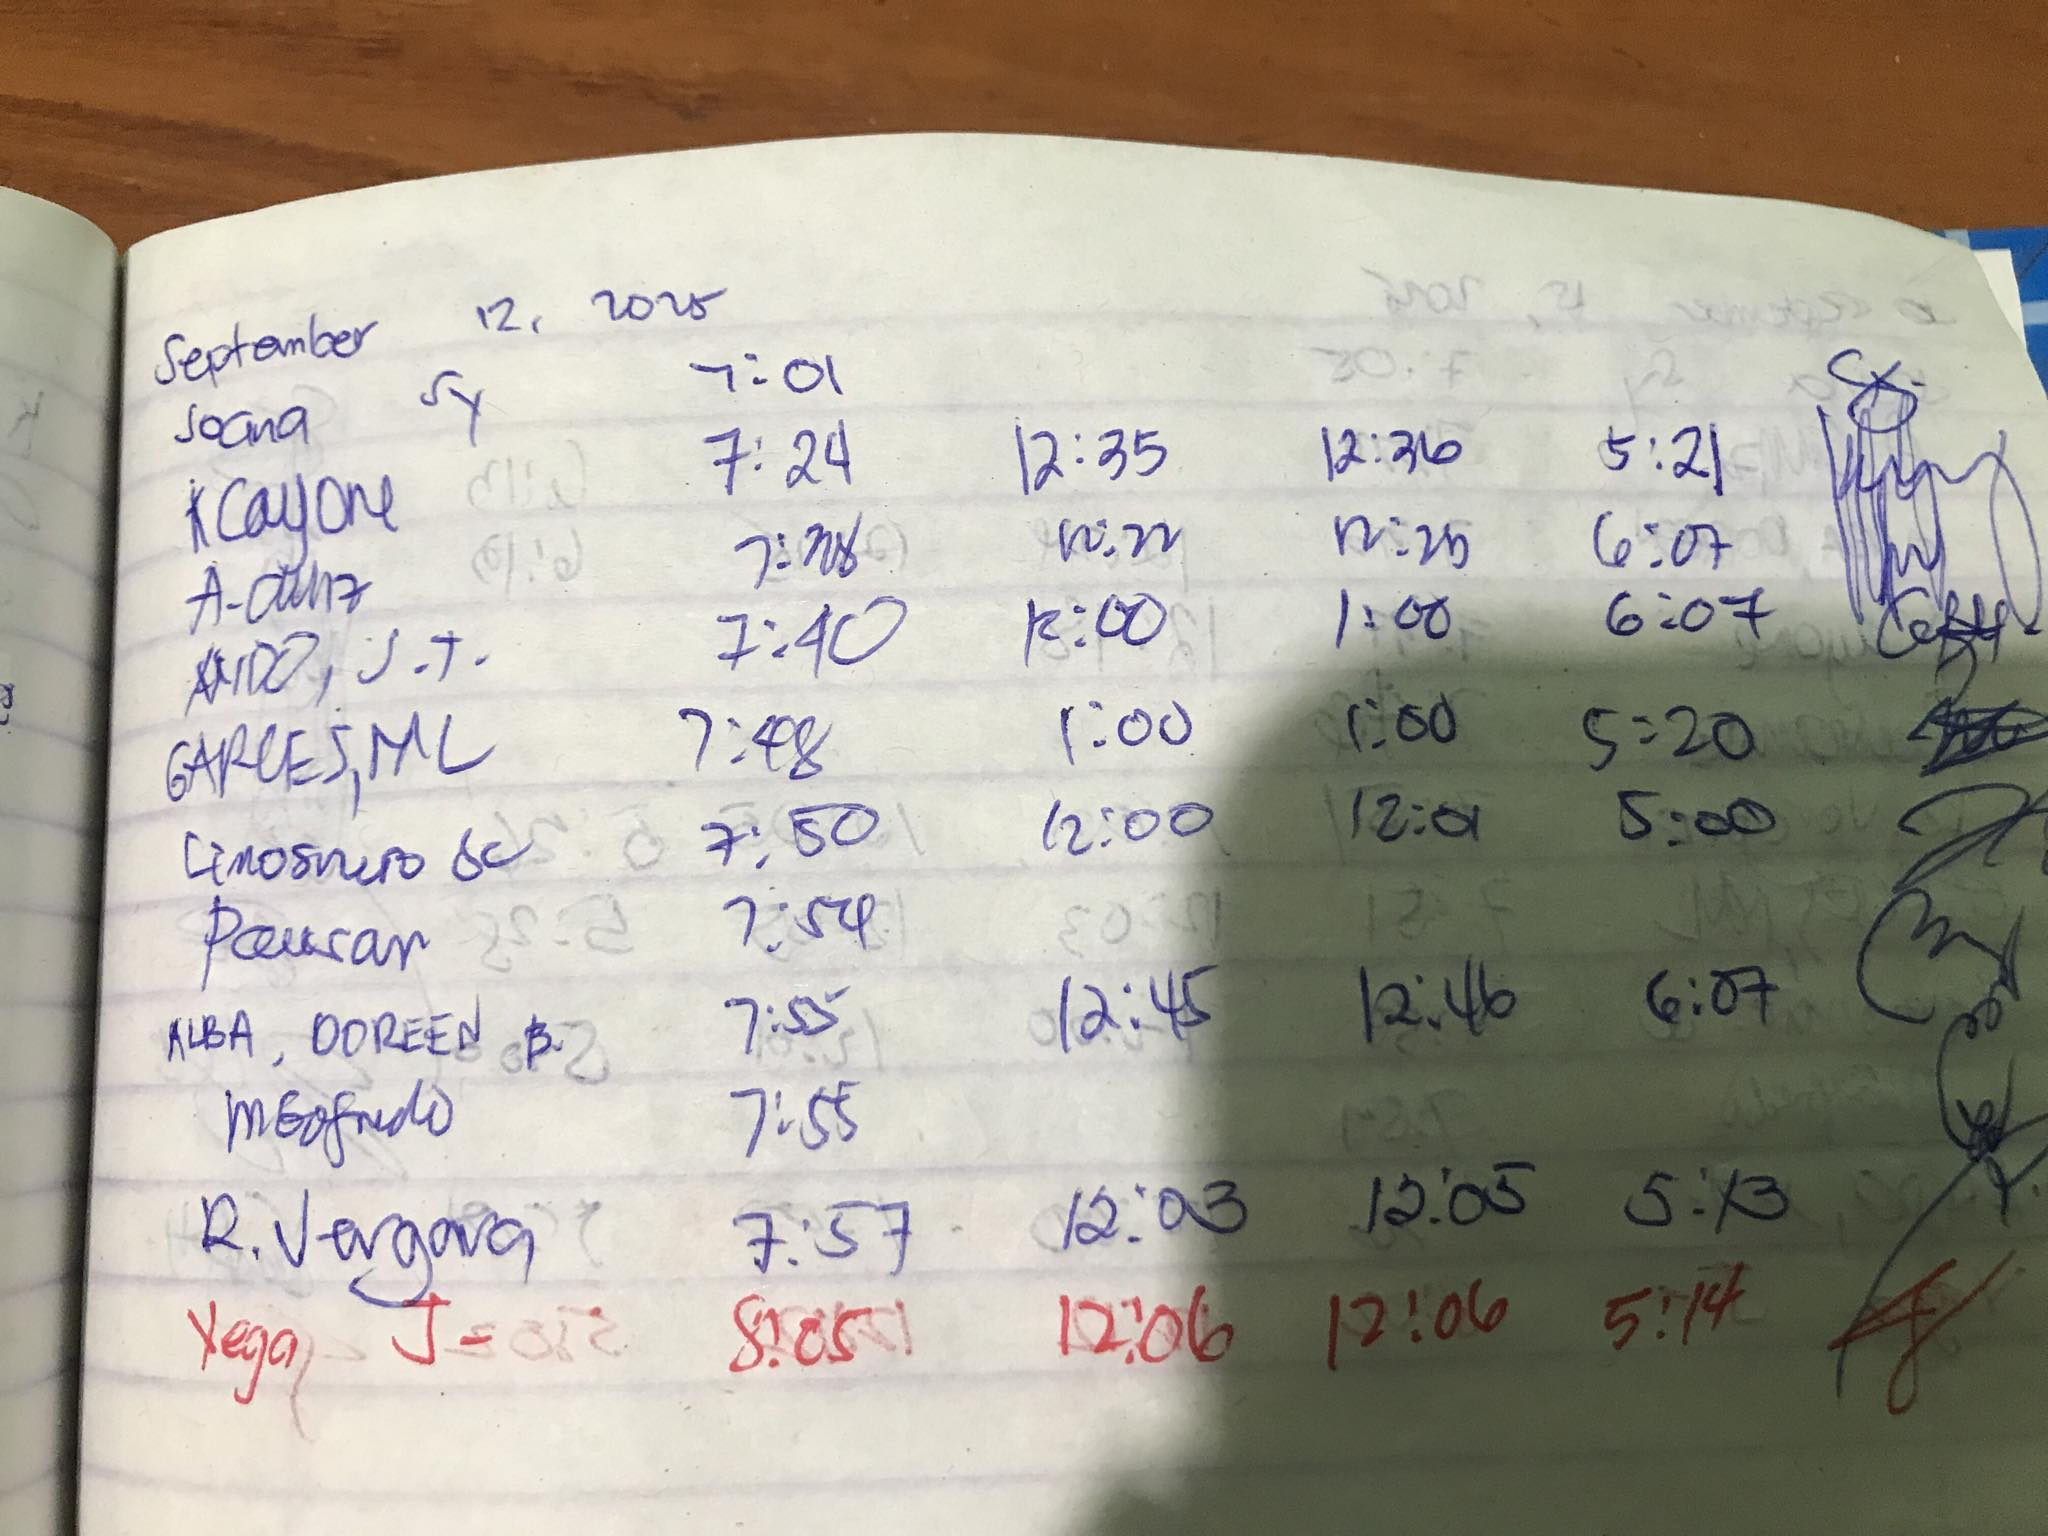 September 12, 2025
Joana Sy 7:01
KCayone 7:24 12:35 12:36 5:21
7:38 12:22 12:25 6:07
J.T. 7:40 12:00 1:00 6:07
GARCES, ML 7:48 1:00 1:00 5:20
Limosnero 7:50 12:00 12:01 5:00
7:54
ALBA, DOREEN B. 7:55 12:45 12:46 6:07
7:55
R. Vergara 7:57 12:03 12:05 5:13
Yega, J- 8:05 12:06 12:06 5:14